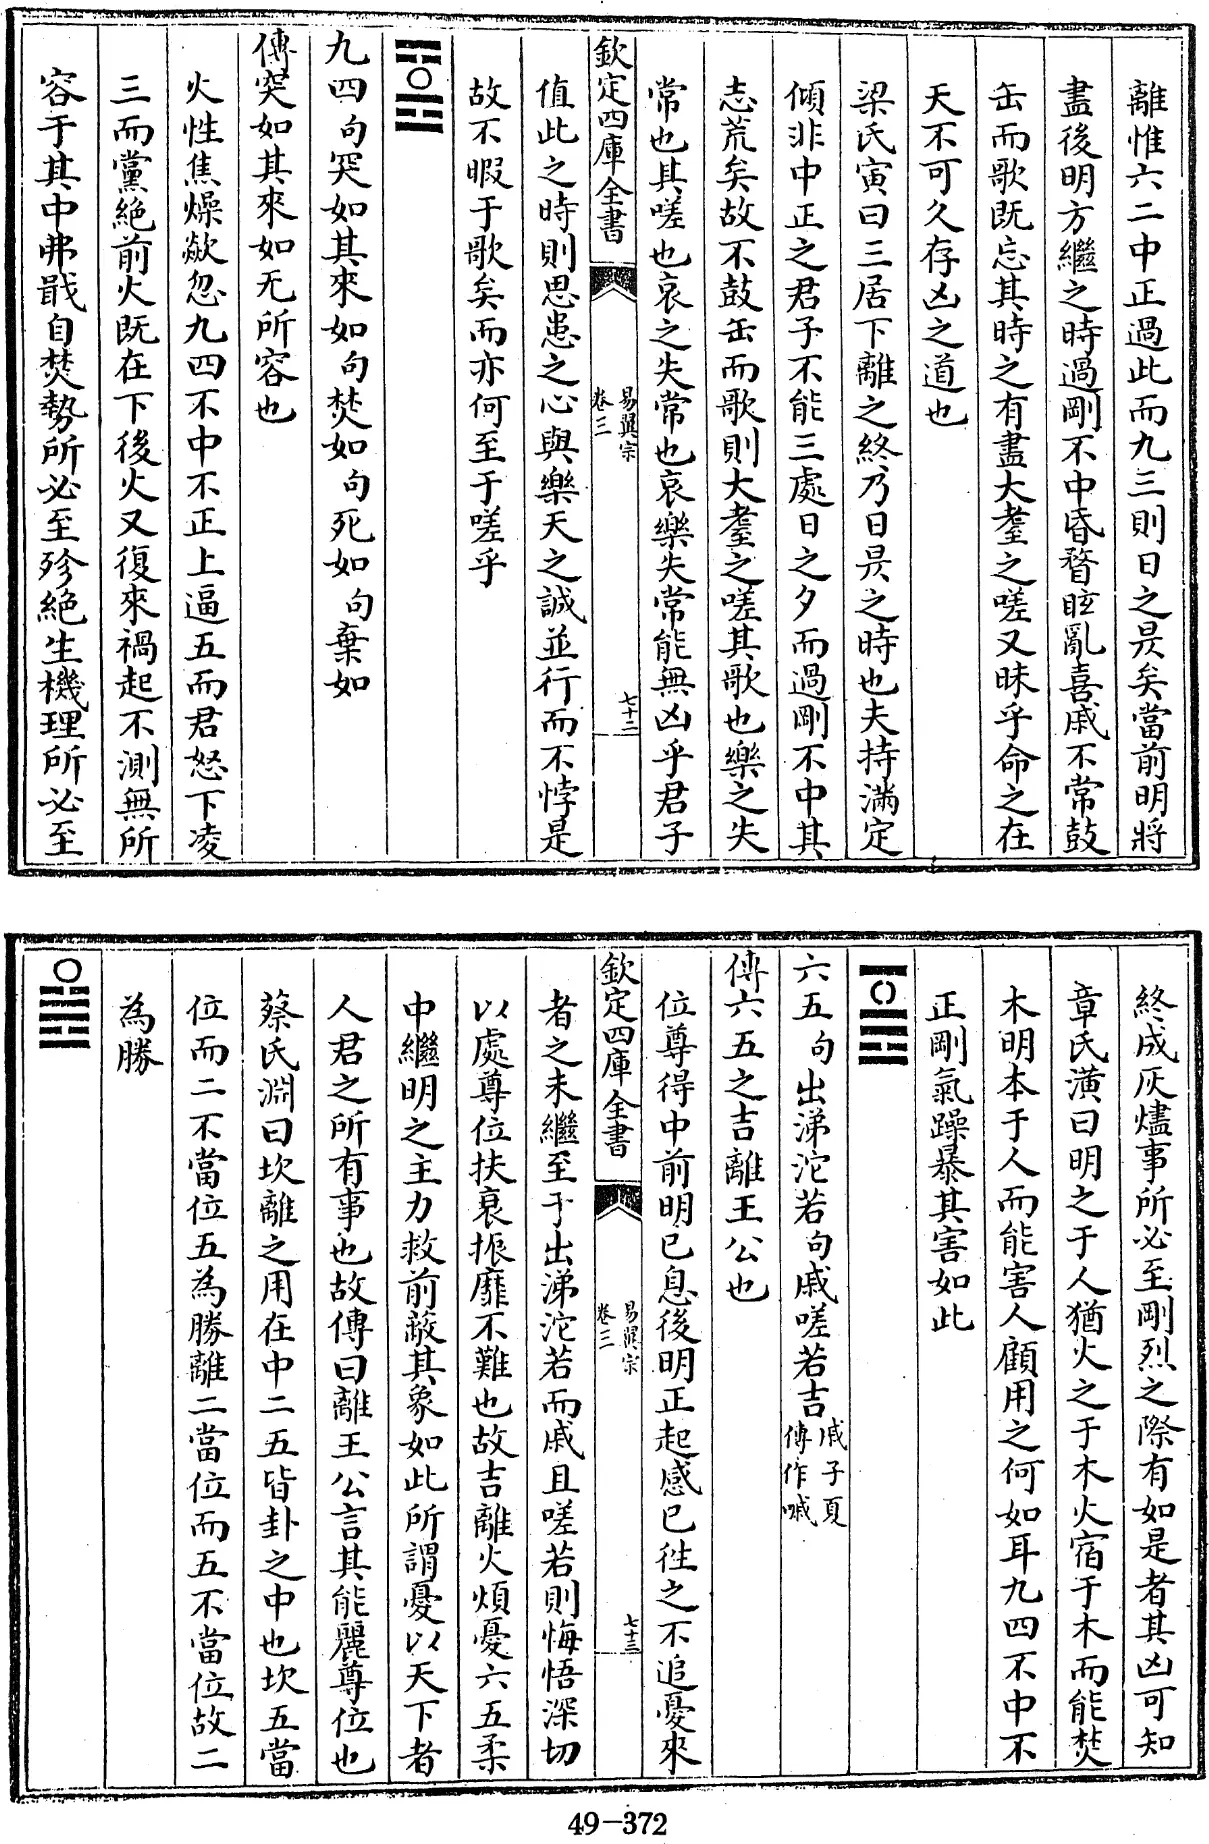 離惟六二中正過此而九三則日之昃矣當前明將
盡後明方繼之時過剛不中昏瞀眩亂喜戚不常鼓
缶而歌既忘其時之有盡大耋之嗟又昧乎命之在
天不可久存凶之道也
梁氏寅曰三居下離之終乃日昃之時也夫持滿定
傾非中正之君子不能三處日之夕而過剛不中其
志荒矣故不鼓缶而歌則大耋之嗟其歌也樂之失
常也其嗟也哀之失常也哀樂失常能無凶乎君子
欽定四庫全書
易翼宗
卷三
七十二
值此之時則思患之心與樂天之誠並行而不悖是
故不暇于歌矣而亦何至于嗟乎
九四句突如其來如句焚如句死如句棄如
傳突如其來如无所容也
火性焦燥歘忽九四不中不正上逼五而君怒下凌
三而黨絶前火既在下後火又復來禍起不測無所
容于其中弗戢自焚勢所必至殄絶生機理所必至
終成灰燼事所必至剛烈之際有如是者其凶可知
章氏潢曰明之于人猶火之于木火宿于木而能焚
木明本于人而能害人顧用之何如耳九四不中不
正剛氣躁暴其害如此
六五句出涕沱若句戚嗟若吉戚子夏傳作嘁
傳六五之吉離王公也
位尊得中前明已息後明正起感已徃之不追憂來
欽定四庫全書
易翼宗
卷三
七十三
者之未繼至于出涕沱若而戚且嗟若則悔悟深切
以處尊位扶衰振靡不難也故吉離火煩憂六五柔
中繼明之主力救前敝其象如此所謂憂以天下者
人君之所有事也故傳曰離王公言其能麗尊位也
蔡氏淵曰坎離之用在中二五皆卦之中也坎五當
位而二不當位五為勝離二當位而五不當位故二
為勝
49-372